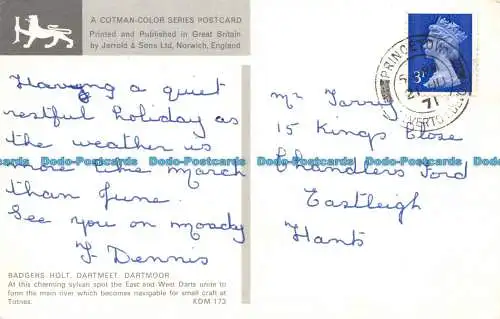 A COTMAN-COLOR SERIES POSTCARD
Printed and Published in Great Britain
by Jarrold & Sons Ltd, Norwich, England
Having a quiet
restful holiday as
the weather is
more like March
than June.
See you on Monday
F Dennis
BADGERS HOLT, DARTMEET, DARTMOOR
At this charming sylvan spot the East and West Darts unite to
form the main river which becomes navigable for small craft at
Totnes. KDM 173
3P
PRINCETOWN
71
YELVERTON
Mr Farry
15 Kings Close
Chandlers Ford
Eastleigh
Hants
Dodo-Postcards Dodo-Postcards Dodo-Postcards Dodo-Postcards Dodo-Postcards